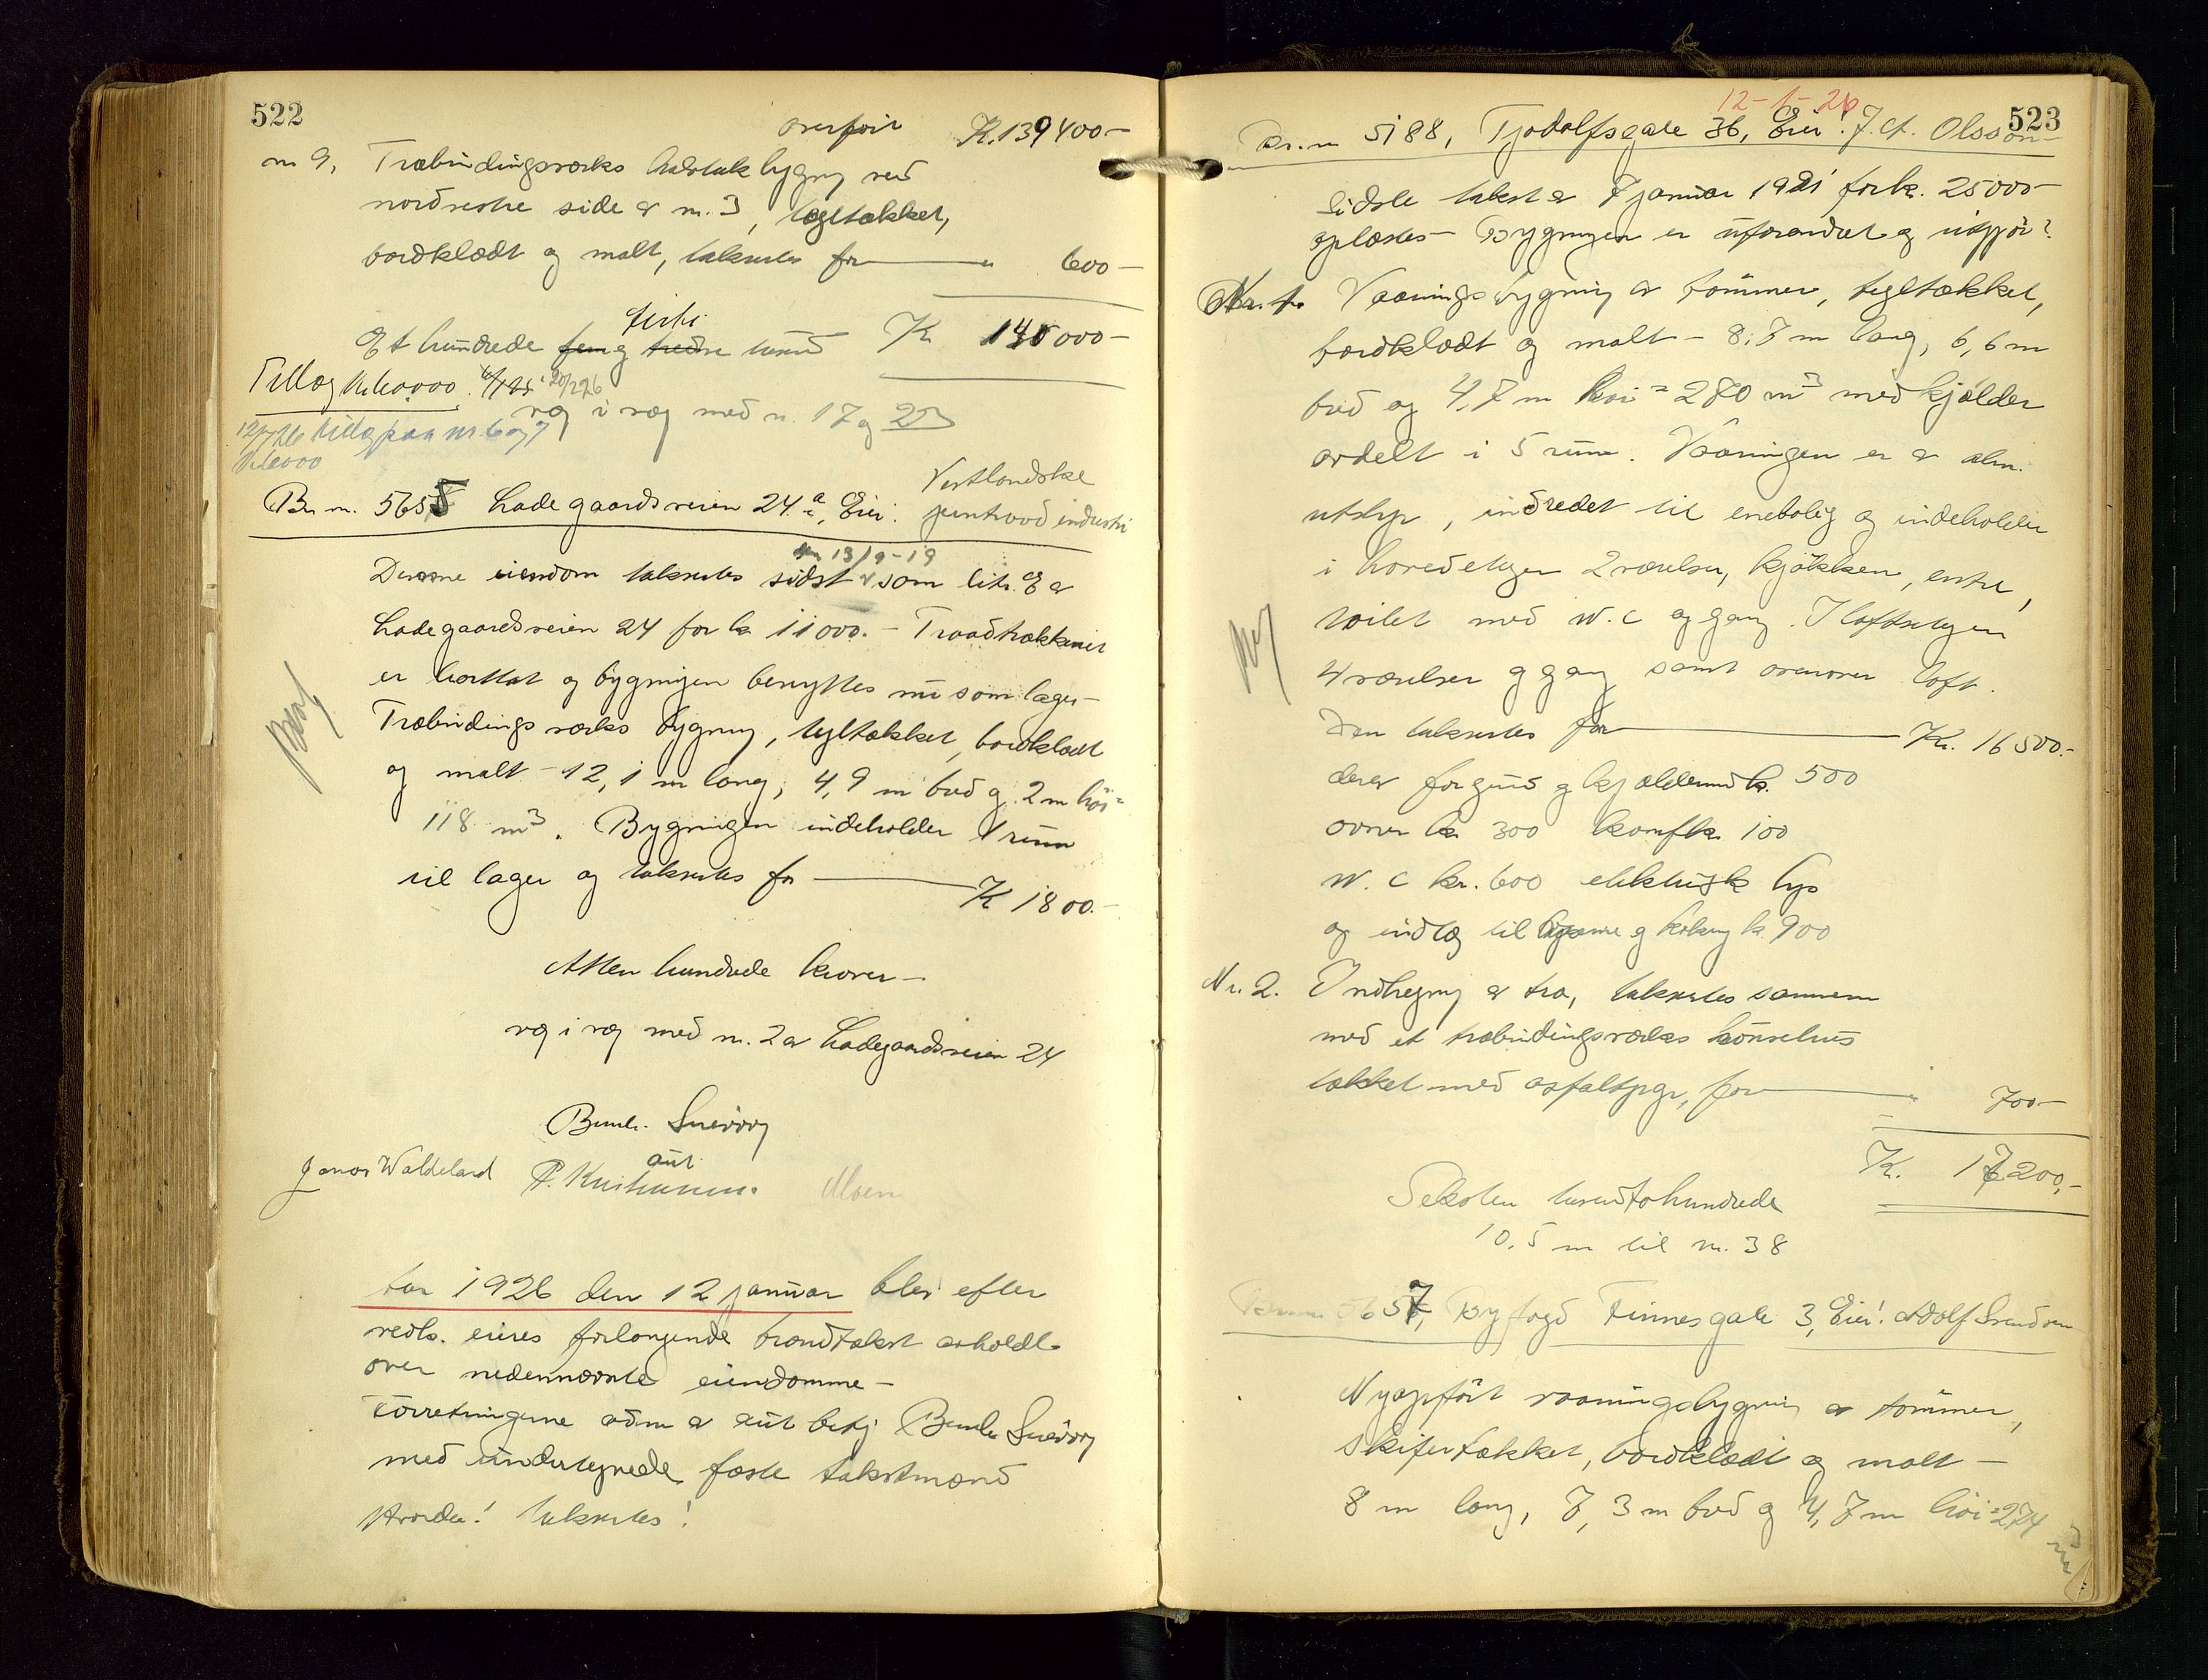 522
overført K. 139400-
nr 9. Træbindingsverks halvtak bygning ved
nordvestre side av nr. 3, tegltækket,
bordklædt og malt, takseres for " 600-
firti
Et hundrede fem og tredve tusind K 140000-
Tillæg
væg i væg med nr. 17 og 25
12/7 26 tillæg paa nr 6 og 7
Br nr. 5655 Ladegaardsveien 24 a, Eier: Vestlandske
industri
den 13/9-19
Denne eiendom taksertes sidst som litr. E av
Ladegaardsveien 24 for kr 11000.- Traadtrækkeriet
er borttat og bygningen benyttes nu som lager-
Træbindingsverks bygning, tegltækket, bordklædt
og malt - 12,1 m lang, 4,9 m bred og 2 m høi =
118 m3. Bygningen indeholder 1 rum
til lager og takseres for K 1800.-
Atten hundrede kroner-
væg i væg med nr. 2 av Ladegaardsveien 24
Bernh. Snewørg
aut.
Jonas Waldeland
Moen
Aar 1926 den 12 januar blev efter
vedk. eieres forlangende brandtakst avholdt
over nedennævnte eiendomme-
Forretningerne adm av aut bestj Bernh Snewørg
med undertegnede faste takstmænd
Hvorda! takseres!
523
12-1-26
Br. nr 5188, Tjodolfsgate 36, Eier: J. A. Olsson-
Sidste takst av 7 januar 1921 for kr. 25000-
oplæstes- Bygningen er uforandret og utgjør:
Nr. 1. Vaaningsbygning av tømmer, tegltækket,
bordklædt og malt - 8,7 m lang, 6,6 m
bred og 4,7 m høi = 280 m3 med kjælder
avdelt i 5 rum. Vaaningen er av alm.
utstyr, indredet til enebolig og indeholder
i hovedetagen 2 værelser, kjøkken, entre,
toilet med W.C og gang. I loftsetagen
4 værelser og gang samt ovenover loft.
Den takseres for Kr. 16500.-
derav for grund og kjældermur kr. 500
ovner kr 300 komf kr. 100
W.C kr. 600 elektrisk lys
og indlæg til varme og kokning kr. 900
Nr. 2. Indhegning av træ, takseres sammen
med et træbindingsverks hønsehus
tækket med asfaltpap, for " 700-
K. 17200,-
Seksten tusend to hundrede
10,5 m til nr. 38
5657, Byfogd Finnesgate 3, Eier: Adolf Svendsen
Nyopført vaaningsbygning av tømmer,
skifertækket, bordklædt og malt -
8 m lang, 7,3 m bred og 4,7 m høi = 274
m3